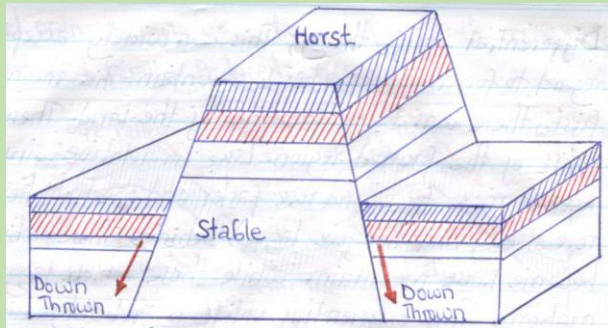 Horst
Stable
Down
Thrown
Down
Thrown